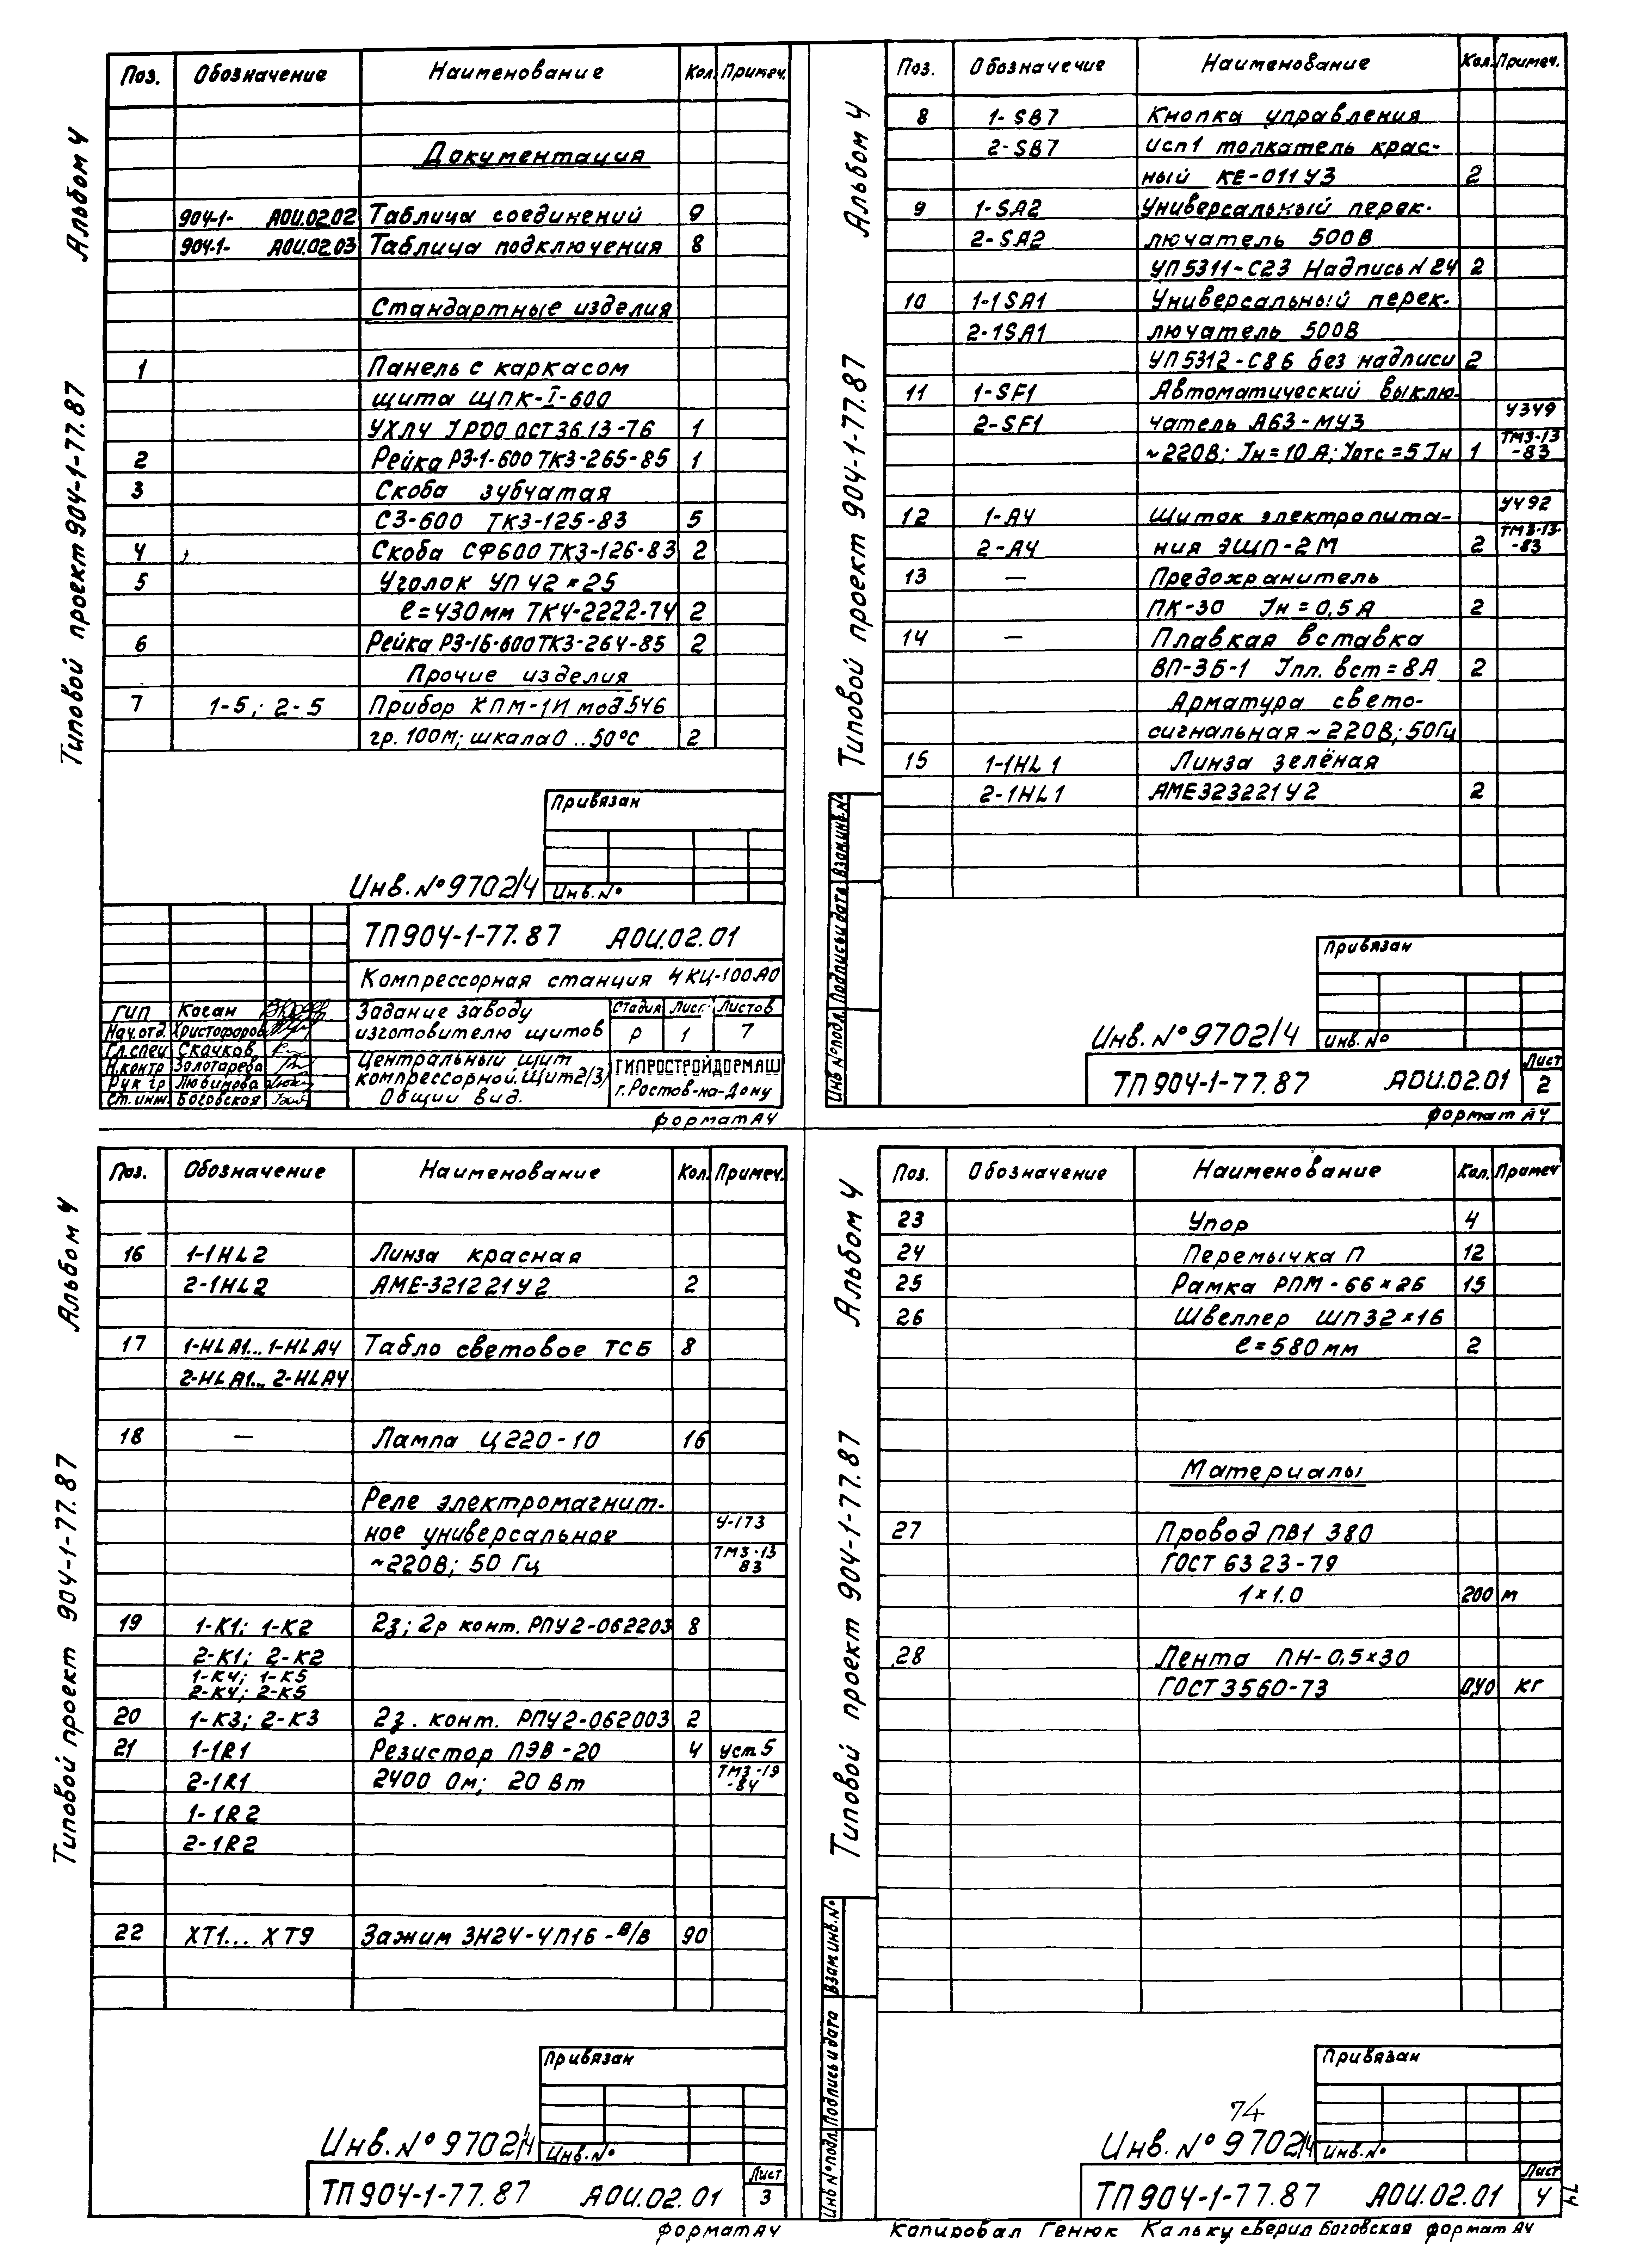 Альбом 4
Типовой проект 904-1-77.87
Поз. Обозначение Наименование Кол. Примеч.
Документация
904-1- АОИ.02.02 Таблица соединений 9
904-1- АОИ.02.03 Таблица подключения 8
Стандартные изделия
1 Панель с каркасом
щита ЩПК-I-600
УХЛ4 IP00 ОСТ36.13-76 1
2 Рейка РЗ-1-600 ТК3-265-85 1
3 Скоба зубчатая
СЗ-600 ТК3-125-83 5
4 Скоба СФ600 ТК3-126-83 2
5 Уголок УП 42×25
ℓ=430мм ТК4-2222-74 2
6 Рейка РЗ-1Б-600 ТК3-264-85 2
Прочие изделия
7 1-5; 2-5 Прибор КПМ-1И мод 546
гр. 100М; шкала 0..50°С 2
Привязан
Инв. № 9702/4 Инв. №
ТП 904-1-77.87 АОИ.02.01
Компрессорная станция 4КЦ-100А0
ГИП Коган
Нач.отд. Христофоров
Гл.спец Скачков
Н.контр Золотарева
Рук гр Любинова
Ст.инж. Боговская
Задание заводу
изготовителю щитов
Стадия Лист Листов
Р 1 7
Центральный щит
компрессорной. Щит2(3)
Общий вид.
ГИПРОСТРОЙДОРМАШ
г.Ростов-на-Дону
формат А4
Альбом 4
Типовой проект 904-1-77.87
Поз. Обозначение Наименование Кол. Примеч.
8 1-SB7 Кнопка управления
2-SB7 исп1 толкатель крас-
ный КЕ-011У3 2
9 1-SA2 Универсальный перек-
2-SA2 лючатель 500В
УП5311-С23 Надпись N24 2
10 1-1SA1 Универсальный перек-
2-1SA1 лючатель 500В
УП5312-С86 без надписи 2
11 1-SF1 Автоматический выклю-
2-SF1 чатель А63-МУ3 У349
~220В; Iн=10А; Iотс=5Iн 1 ТМ3-13
-83
12 1-А4 Щиток электропита- У492
2-А4 ния ЭЩП-2М 2 ТМ3-13-
-83
13 — Предохранитель
ПК-30 Iн=0,5А 2
14 — Плавкая вставка
ВП-3Б-1 Iпл. вст=8А 2
Арматура свето-
сигнальная ~220В; 50Гц
15 1-1HL1 Линза зелёная
2-1HL1 АМЕ323221У2 2
Инв № подл. Подпись и дата Взам.инв.№
Привязан
Инв. № 9702/4 Инв. №
ТП 904-1-77.87 АОИ.02.01 Лист
2
формат А4
Альбом 4
Типовой проект 904-1-77.87
Поз. Обозначение Наименование Кол. Примеч.
16 1-1HL2 Линза красная
2-1HL2 АМЕ-321221У2 2
17 1-HLA1... 1-HLA4 Табло световое ТСБ 8
2-HLA1... 2-HLA4
18 — Лампа Ц220-10 16
Реле электромагнит-
ное универсальное У-173
~220В; 50 Гц ТМ3-13
83
19 1-К1; 1-К2 2з; 2р конт. РПУ2-062203 8
2-К1; 2-К2
1-К4; 1-К5
2-К4; 2-К5
20 1-К3; 2-К3 2з. конт. РПУ2-062003 2
21 1-1R1 Резистор ПЭВ-20 4 уст 5
2-1R1 2400 Ом; 20 Вт ТМ3-19
-84
1-1R2
2-1R2
22 ХТ1... ХТ9 Зажим ЗН24-4П16-В/В 90
Привязан
Инв. № 9702/4 Инв. №
ТП 904-1-77.87 АОИ.02.01 Лист
3
формат А4
Альбом 4
Типовой проект 904-1-77.87
Поз. Обозначение Наименование Кол. Примеч
23 Упор 4
24 Перемычка П 12
25 Рамка РПМ-66×26 15
26 Швеллер ШП32×16
ℓ=580мм 2
Материалы
27 Провод ПВ1 380
ГОСТ 6323-79
1×1.0 200 м
28 Лента ПН-0,5×30
ГОСТ 3560-73 0,40 кг
Инв № подл. Подпись и дата Взам инв.№
Привязан
74
Инв. № 9702/4 Инв. №
ТП 904-1-77.87 АОИ.02.01 Лист
4
74
Копировал Генюк Кальку сверил Боговская формат А4